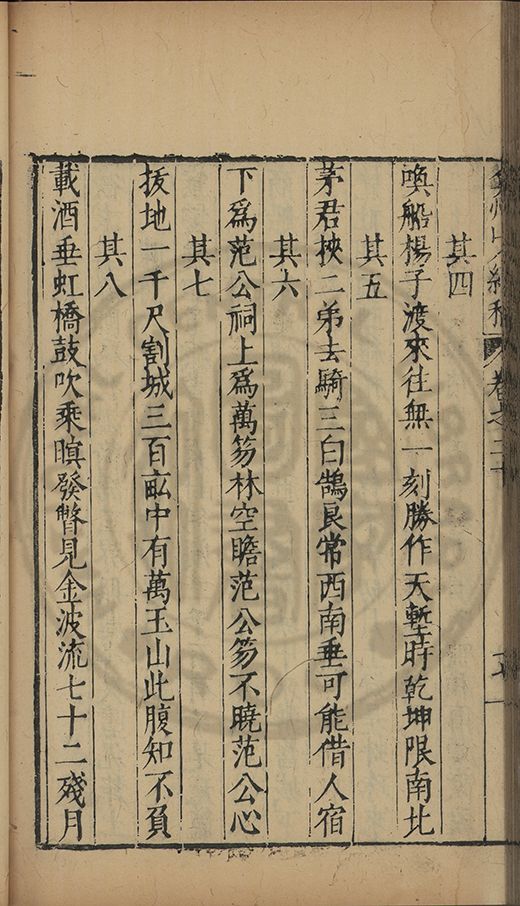 卷之二十
其四
喚船楊子渡來往無一刻勝作天塹時乾坤限南北
其五
茅君挾二弟去騎三白鵠良常西南垂可能借人宿
其六
下為范公祠上為萬笏林空瞻范公笏不曉范公心
其七
拔地一千尺割城三百畝中有萬玉山此腹知不負
其八
載酒垂虹橋鼓吹乘暝發瞥見金波流七十二殘月